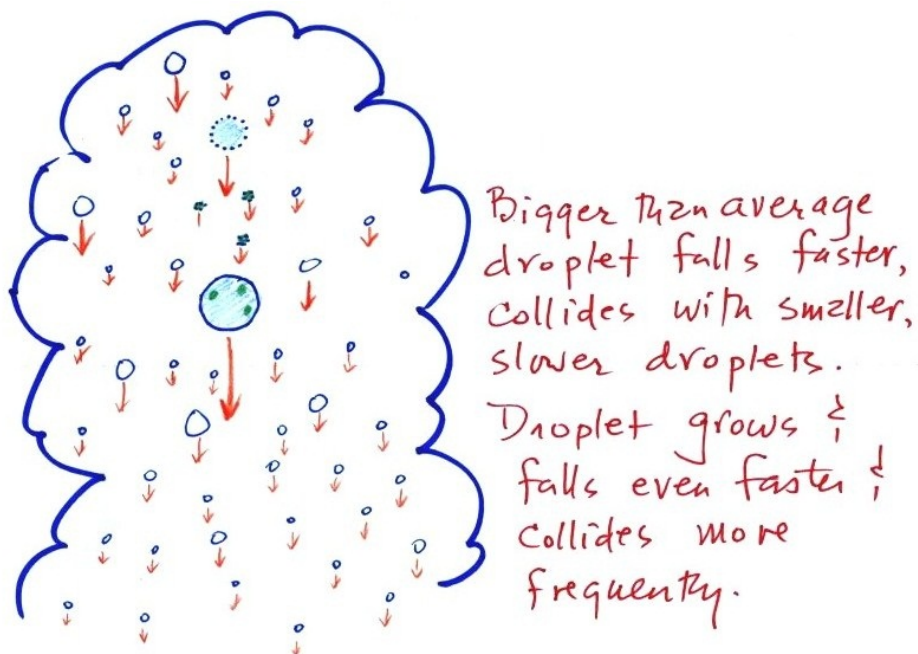 Bigger than average
droplet falls faster,
collides with smaller,
slower droplets.
Droplet grows &
falls even faster &
collides more
frequently.